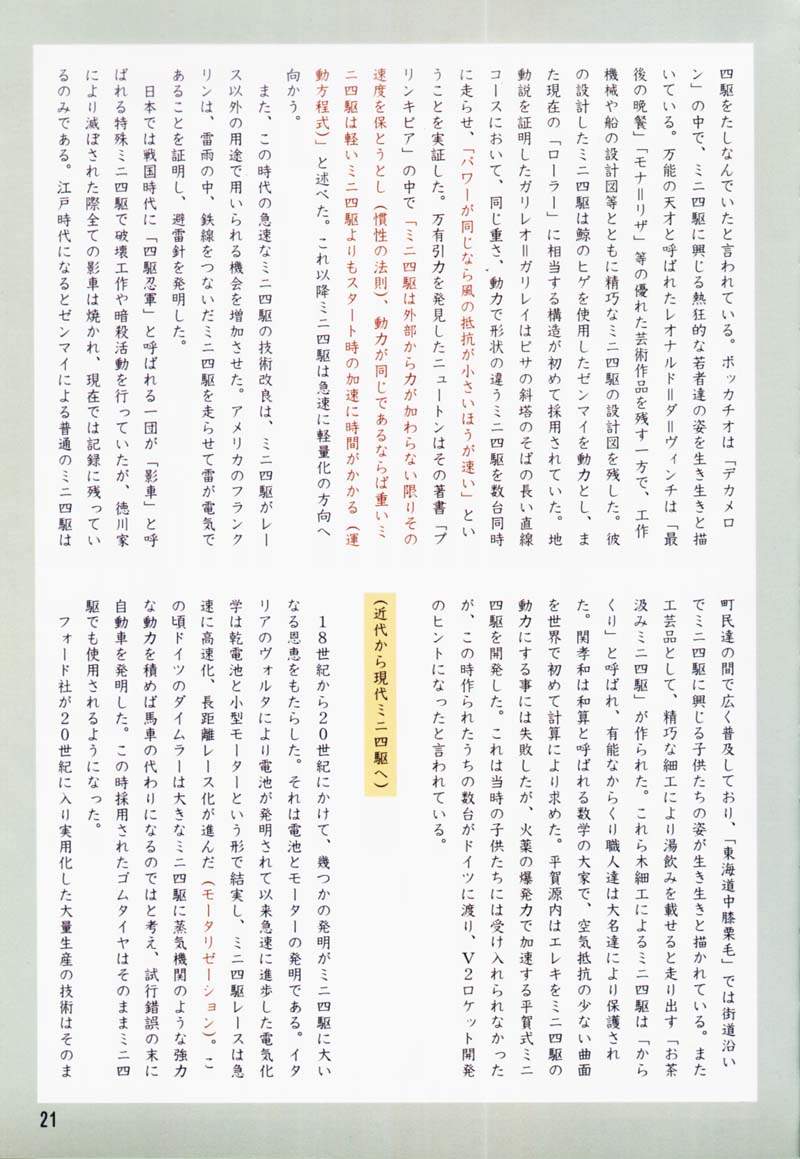 四駆をたしなんでいたと言われている。ボッカチオは「デカメロ
ン」の中で、ミニ四駆に興じる熱狂的な若者達の姿を生き生きと描
いている。万能の天才と呼ばれたレオナルド＝ダ＝ヴィンチは「最
後の晩餐」「モナ＝リザ」等の優れた芸術作品を残す一方で、工作
機械や船の設計図等とともに精巧なミニ四駆の設計図を残した。彼
の設計したミニ四駆は鯨のヒゲを使用したゼンマイを動力とし、ま
た現在の「ローラー」に相当する構造が初めて採用されていた。地
動説を証明したガリレオ＝ガリレイはピサの斜塔のそばの長い直線
コースにおいて、同じ重さ、動力で形状の違うミニ四駆を数台同時
に走らせ、「パワーが同じなら風の抵抗が小さいほうが速い」とい
うことを実証した。万有引力を発見したニュートンはその著書「プ
リンキピア」の中で「ミニ四駆は外部から力が加わらない限りその
速度を保とうとし（慣性の法則）、動力が同じであるならば重いミ
ニ四駆は軽いミニ四駆よりもスタート時の加速に時間がかかる（運
動方程式）」と述べた。これ以降ミニ四駆は急速に軽量化の方向へ
向かう。
また、この時代の急速なミニ四駆の技術改良は、ミニ四駆がレー
ス以外の用途で用いられる機会を増加させた。アメリカのフランク
リンは、雷雨の中、鉄線をつないだミニ四駆を走らせて雷が電気で
あることを証明し、避雷針を発明した。
日本では戦国時代に「四駆忍軍」と呼ばれる一団が「影車」と呼
ばれる特殊ミニ四駆で破壊工作や暗殺活動を行っていたが、徳川家
により滅ぼされた際全ての影車は焼かれ、現在では記録に残ってい
るのみである。江戸時代になるとゼンマイによる普通のミニ四駆は
町民達の間で広く普及しており、「東海道中膝栗毛」では街道沿い
でミニ四駆に興じる子供たちの姿が生き生きと描かれている。また
工芸品として、精巧な細工により湯飲みを載せると走り出す「お茶
汲みミニ四駆」が作られた。これら木細工によるミニ四駆は「から
くり」と呼ばれ、有能なからくり職人達は大名達により保護され
た。関孝和は和算と呼ばれる数学の大家で、空気抵抗の少ない曲面
を世界で初めて計算により求めた。平賀源内はエレキをミニ四駆の
動力にする事には失敗したが、火薬の爆発力で加速する平賀式ミニ
四駆を開発した。これは当時の子供たちには受け入れられなかった
が、この時作られたうちの数台がドイツに渡り、V2ロケット開発
のヒントになったと言われている。
（近代から現代ミニ四駆へ）
18世紀から20世紀にかけて、幾つかの発明がミニ四駆に大い
なる恩恵をもたらした。それは電池とモーターの発明である。イタ
リアのヴォルタにより電池が発明されて以来急速に進歩した電気化
学は乾電池と小型モーターという形で結実し、ミニ四駆レースは急
速に高速化、長距離レース化が進んだ（モータリゼーション）。こ
の頃ドイツのダイムラーは大きなミニ四駆に蒸気機関のような強力
な動力を積めば馬車の代わりになるのではと考え、試行錯誤の末に
自動車を発明した。この時採用されたゴムタイヤはそのままミニ四
駆でも使用されるようになった。
フォード社が20世紀に入り実用化した大量生産の技術はそのま
21